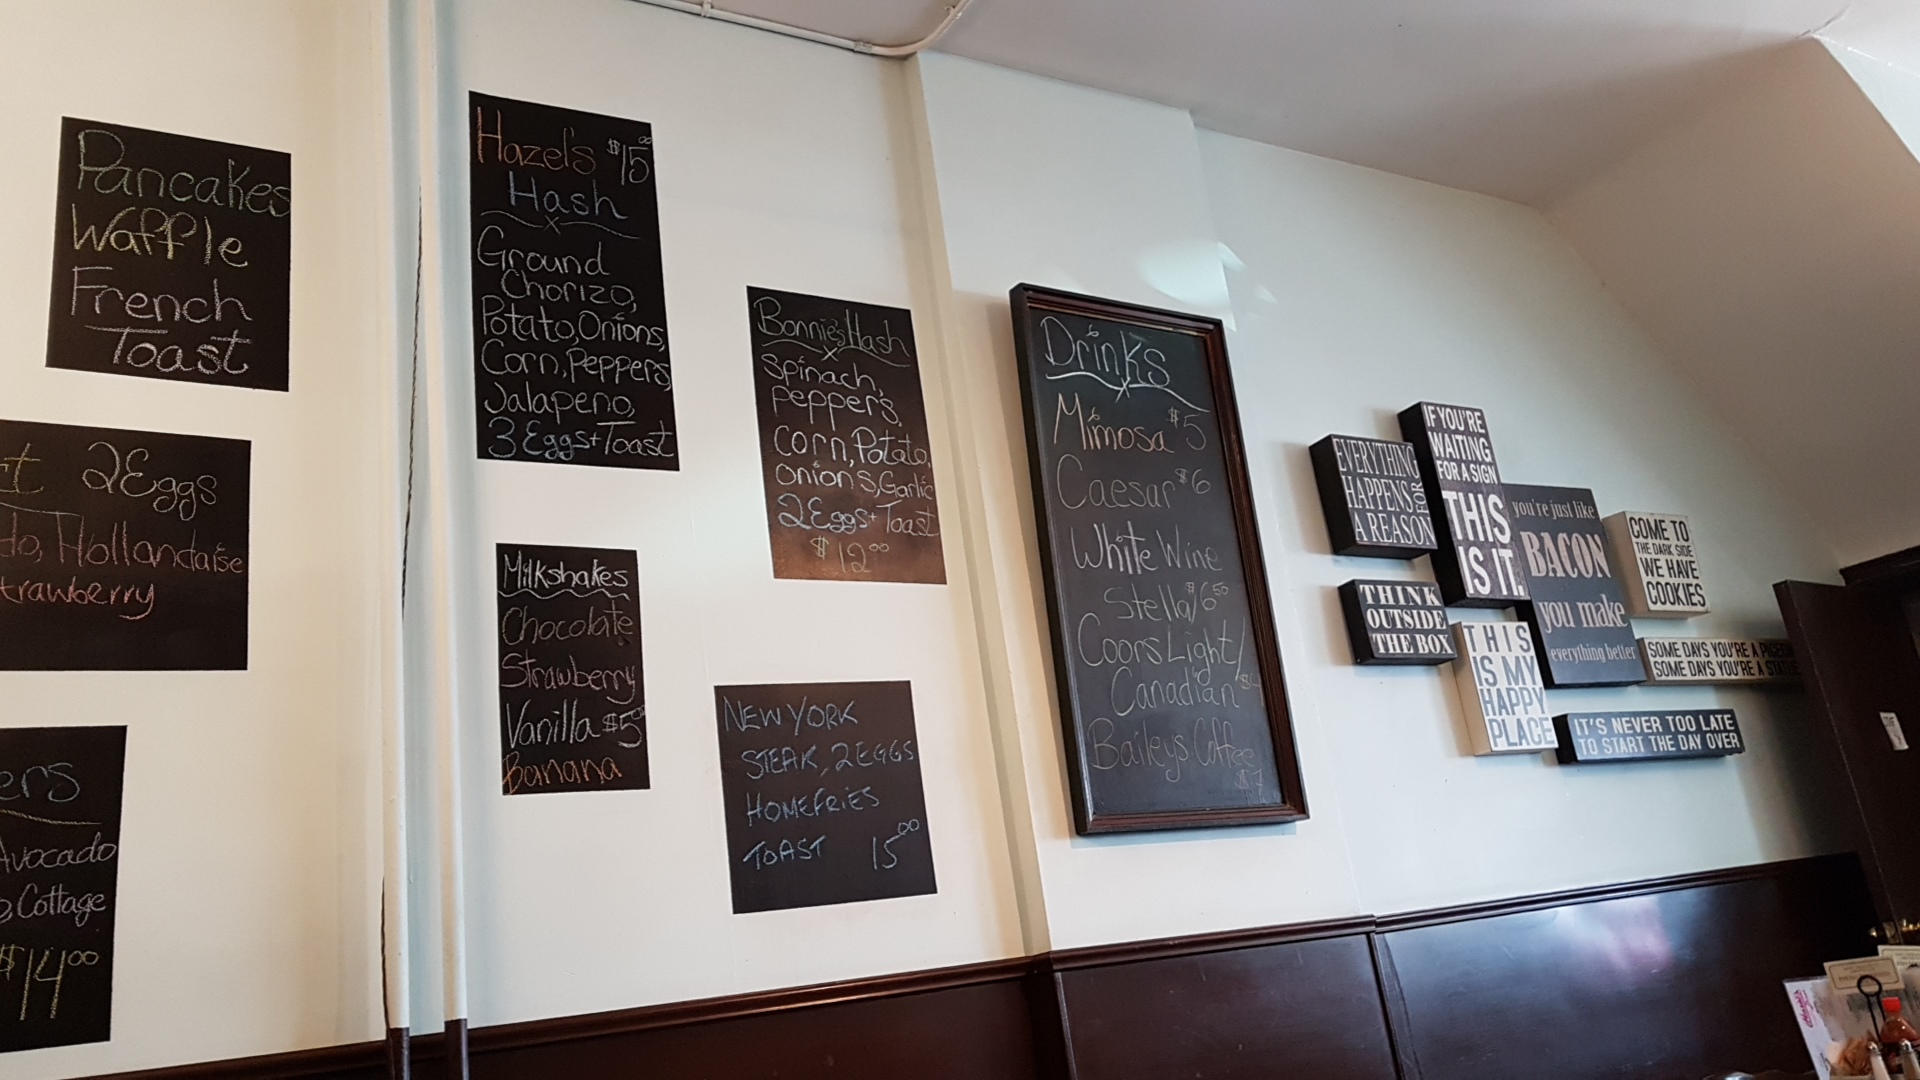 Pancakes
Waffle
French
Toast
2Eggs
Hollandaise
Avocado
Cottage
$14.00
Hazel's $15.00
Hash
Ground
Chorizo,
Potato, Onions,
Corn, Peppers,
Jalapeno,
3 Eggs + Toast
Milkshakes
Chocolate
Strawberry
Vanilla $5.00
Banana
Bonnie's Hash
Spinach,
Pepper's,
Corn, Potato,
Onions, Garlic
2 Eggs + Toast
$12.00
NEW YORK
STEAK, 2 EGGS
HOMEFRIES
TOAST 15.00
Drinks
Mimosa $5
Caesar $6
White Wine
Stella/$6.50
Coors Light/
Canadian
Baileys Coffee
EVERYTHING
HAPPENS FOR
A REASON
IF YOU'RE
WAITING
FOR A SIGN
THIS
IS IT.
you're just like
BACON
you make
everything better
COME TO
THE DARK SIDE
WE HAVE
COOKIES
THINK
OUTSIDE
THE BOX
THIS
IS MY
HAPPY
PLACE
SOME DAYS YOU'RE A
SOME DAYS YOU'RE A
IT'S NEVER TOO LATE
TO START THE DAY OVER.